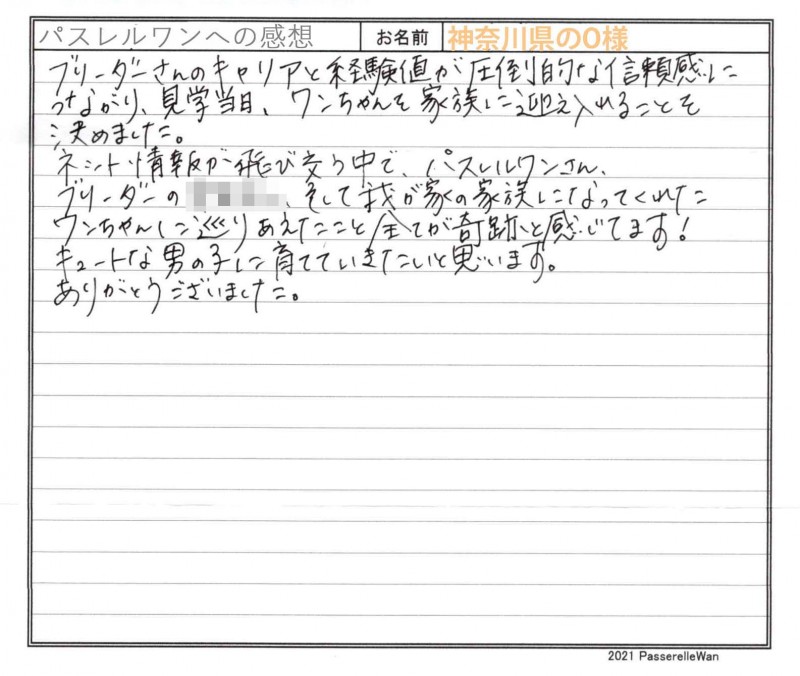 パスレルワンへの感想 お名前 神奈川県のO様
ブリーダーさんのキャリアと経験値が圧倒的な信頼感に
つながり、見学当日、ワンちゃんを家族に迎え入れることを
決めました。
ネット情報が飛び交う中で、パスレルワンさん、
ブリーダーの 、そして我が家の家族になってくれた
ワンちゃんに巡りあえたこと全てが奇跡と感じてます!
キュートな男の子に育てていきたいと思います。
ありがとうございました。
2021 PasserelleWan